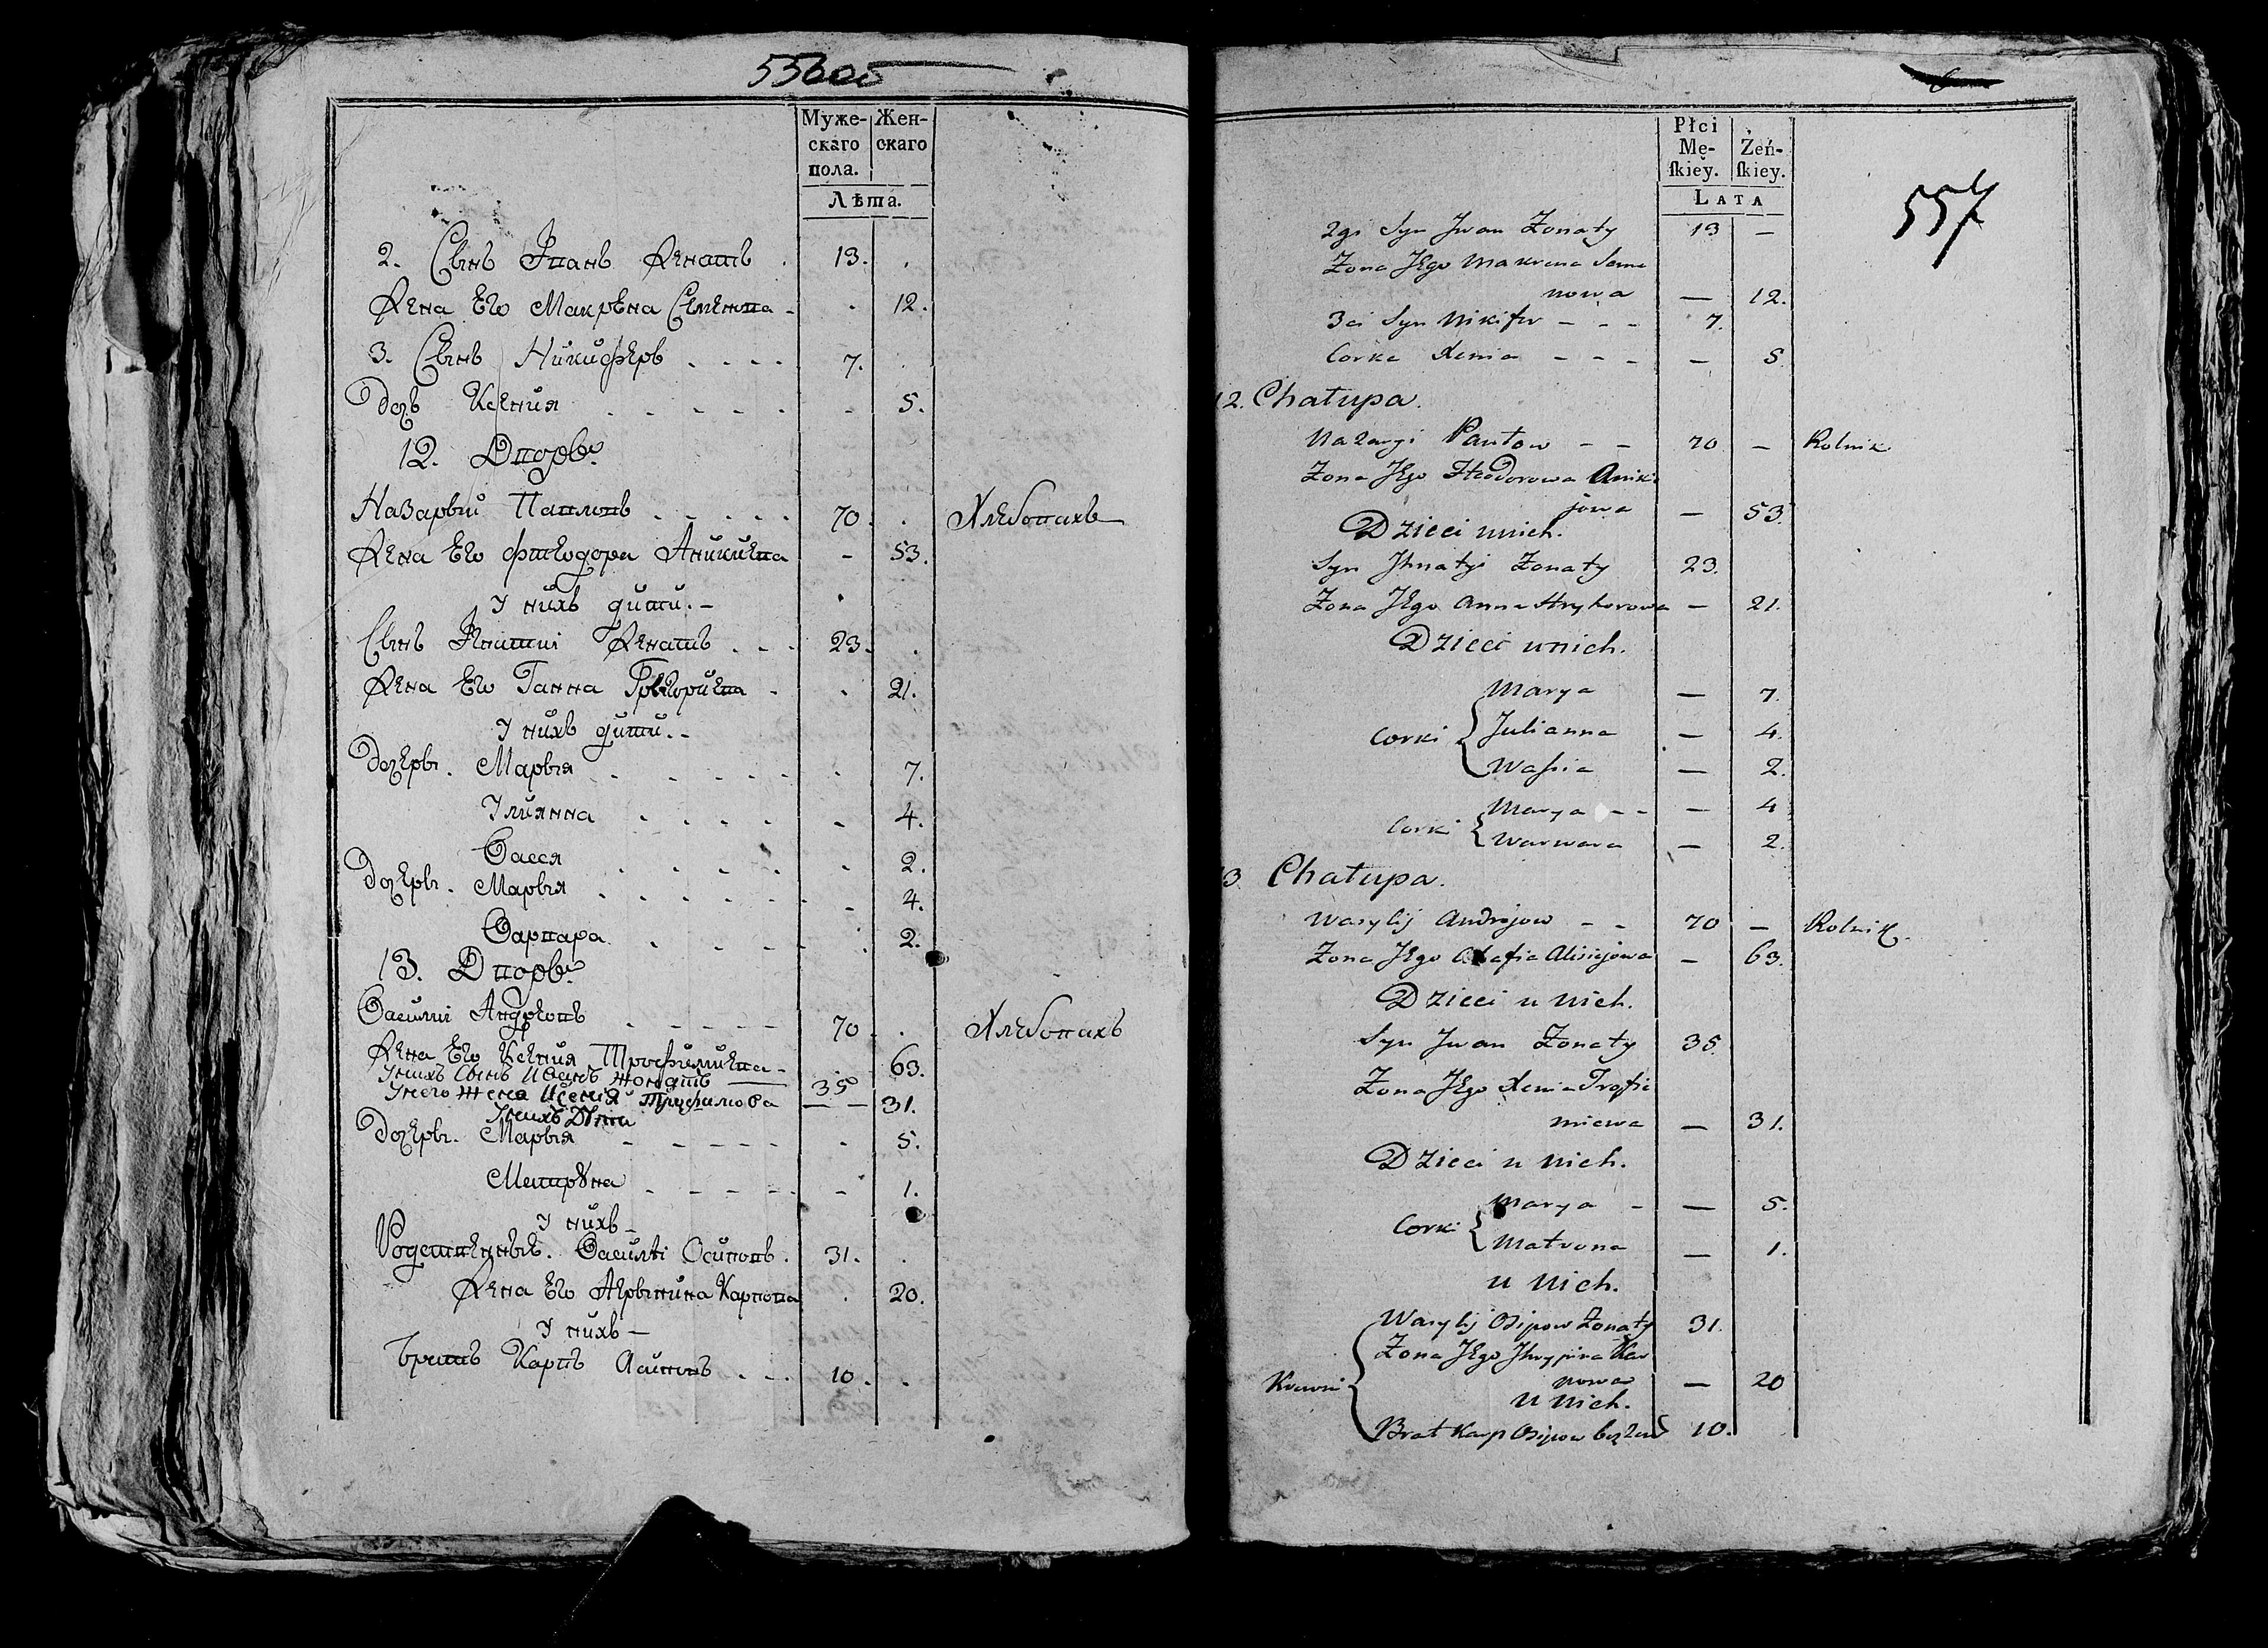 556об
Муже- Жен-
скаго скаго
пола.
Лѣта.
2. Сынъ Іванъ Женатъ 13.
Жена Его Макрена Семенова - 12.
3. Сынъ Никиферъ . . . . 7.
Дочъ Ксения . . . . . - 5.
12. Дворъ
Назарый Павловъ . . . . . 70. Хлебопахъ
Жена Его Фтеодора Аникиева - 53.
У нихъ дити. -
Сынъ Игнатий Женатъ . . . 23.
Жена Его Ганна Грыгориева - 21.
У нихъ дити. -
Дочеры. Марыя . . . . . 7.
Улиянна . . . . - 4.
Васся . . . . - 2.
Дочеры. Марыя . . . . . - 4.
Варвара . . . . 2.
13. Дворъ
Василиі Андреовъ . . . . . 70. Хлебопахъ
Жена Его Ксения Трофимиева - 63.
У нихъ Сынъ Иванъ жонатъ — 35
У него жена Ксения Трофимова — — 31.
У нихъ Дѣти
Дочеры. Марыя - - - - - 5.
Матруна - - - - - 1.
У нихъ -
Родственныѣ. Василѣі Осиповъ . 31.
Жена Его Агрыпина Карпова . 20.
У нихъ —
Братъ Карпъ Асиповъ . . . 10.
557
Płci
Mę- Żeń-
ſkiey. ſkiey.
LATA
2gi Syn Jwan Żonaty 13 —
Żona JEgo Makrena Seme
nowa — 12.
3ci Syn Nikifor - - - 7.
Corka Xenia - - - — 5
12. Chałupa.
Nazaryi Pawłow - - 70 — Rolnik
Żona JEgo Fteodorowa Aniki
jowa — 53.
Dzieci u nich.
Syn Jhnatyi Żonaty 23.
Żona JEgo Anna Hryhorowa — 21.
Dzieci u nich.
Marya — 7.
Corki Julianna — 4.
Wasia — 2.
Marya - - — 4
Corki Warwara — 2.
13. Chałupa.
Wasylij Andrejow - - 70 — Rolnik.
Żona JEgo Ahafia Alisiejowa — 63.
Dzieci u nich.
Syn Jwan Żonaty 35.
Żona JEgo Xenia Trofie
miewa — 31.
Dzieci u nich.
Marya - — 5.
Corki Matrona — 1.
u nich.
Wasylij Osipow Żonaty 31.
Żona JEgo Jhrypina Kar
Krewni powa — 20
u nich.
Brat Karp Osipow 10.